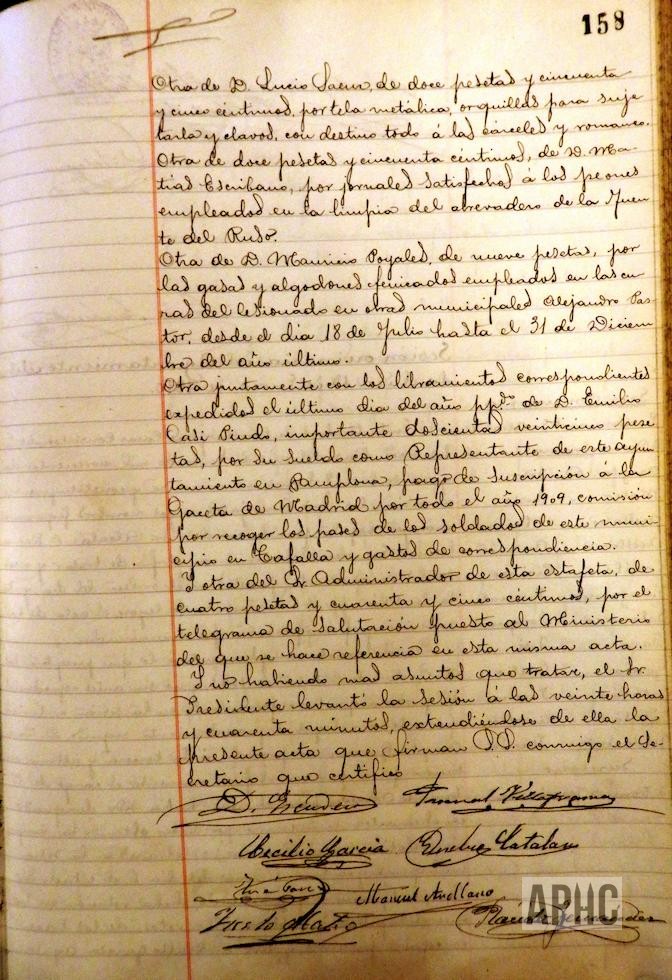 158
Otra de D. Lucio Saenz, de doce pesetas y cincuenta
y cinco céntimos, por tela metálica, orquillas para suje
tarla y clavos, con destino todo á las cárceles y romanco.
Otra de doce pesetas y cincuenta céntimos, de D. Ma-
tias Escribano, por jornales satisfechos á los peones
empleados en la limpia del abrevadero de la Fuen
te del Ruso.
Otra de D. Mauricio Poyales, de nueve pesetas, por
las gasas y algodones fenicados empleados en las cu
ras del lesionado en obras municipales Alejandro Pas-
tor, desde el dia 18 de Julio hasta el 31 de Diciem
bre del año último.
Otra juntamente con los libramientos correspondientes
expedidos el último dia del año pp.do de D. Emilio
Casi Pindo, importante doscientas veinticinco pese
tas, por su sueldo como Representante de este ayun
tamiento en Pamplona, pago de suscripción á la
Gaceta de Madrid por todo el año 1909, comisión
por recoger los pases de los soldados de este muni
cipio en Tafalla y gastos de correspondiencia.
Y otra del Sr. Administrador de esta estafeta, de
cuatro pesetas y cuarenta y cinco céntimos, por el
telegrama de salutación puesto al Ministerio
del que se hace referencia en esta misma acta.
Y no habiendo mas asuntos que tratar, el Sr.
Presidente levantó la sesión á las veinte horas
y cuarenta minutos, extendiéndose de ella la
presente acta que firman S.S. conmigo el Se-
cretario que certifico
D.
Manuel Villafranca
Cecilio Garcia Eusebio Catalan
Manuel Arellano
Placido Fernandez
APHC